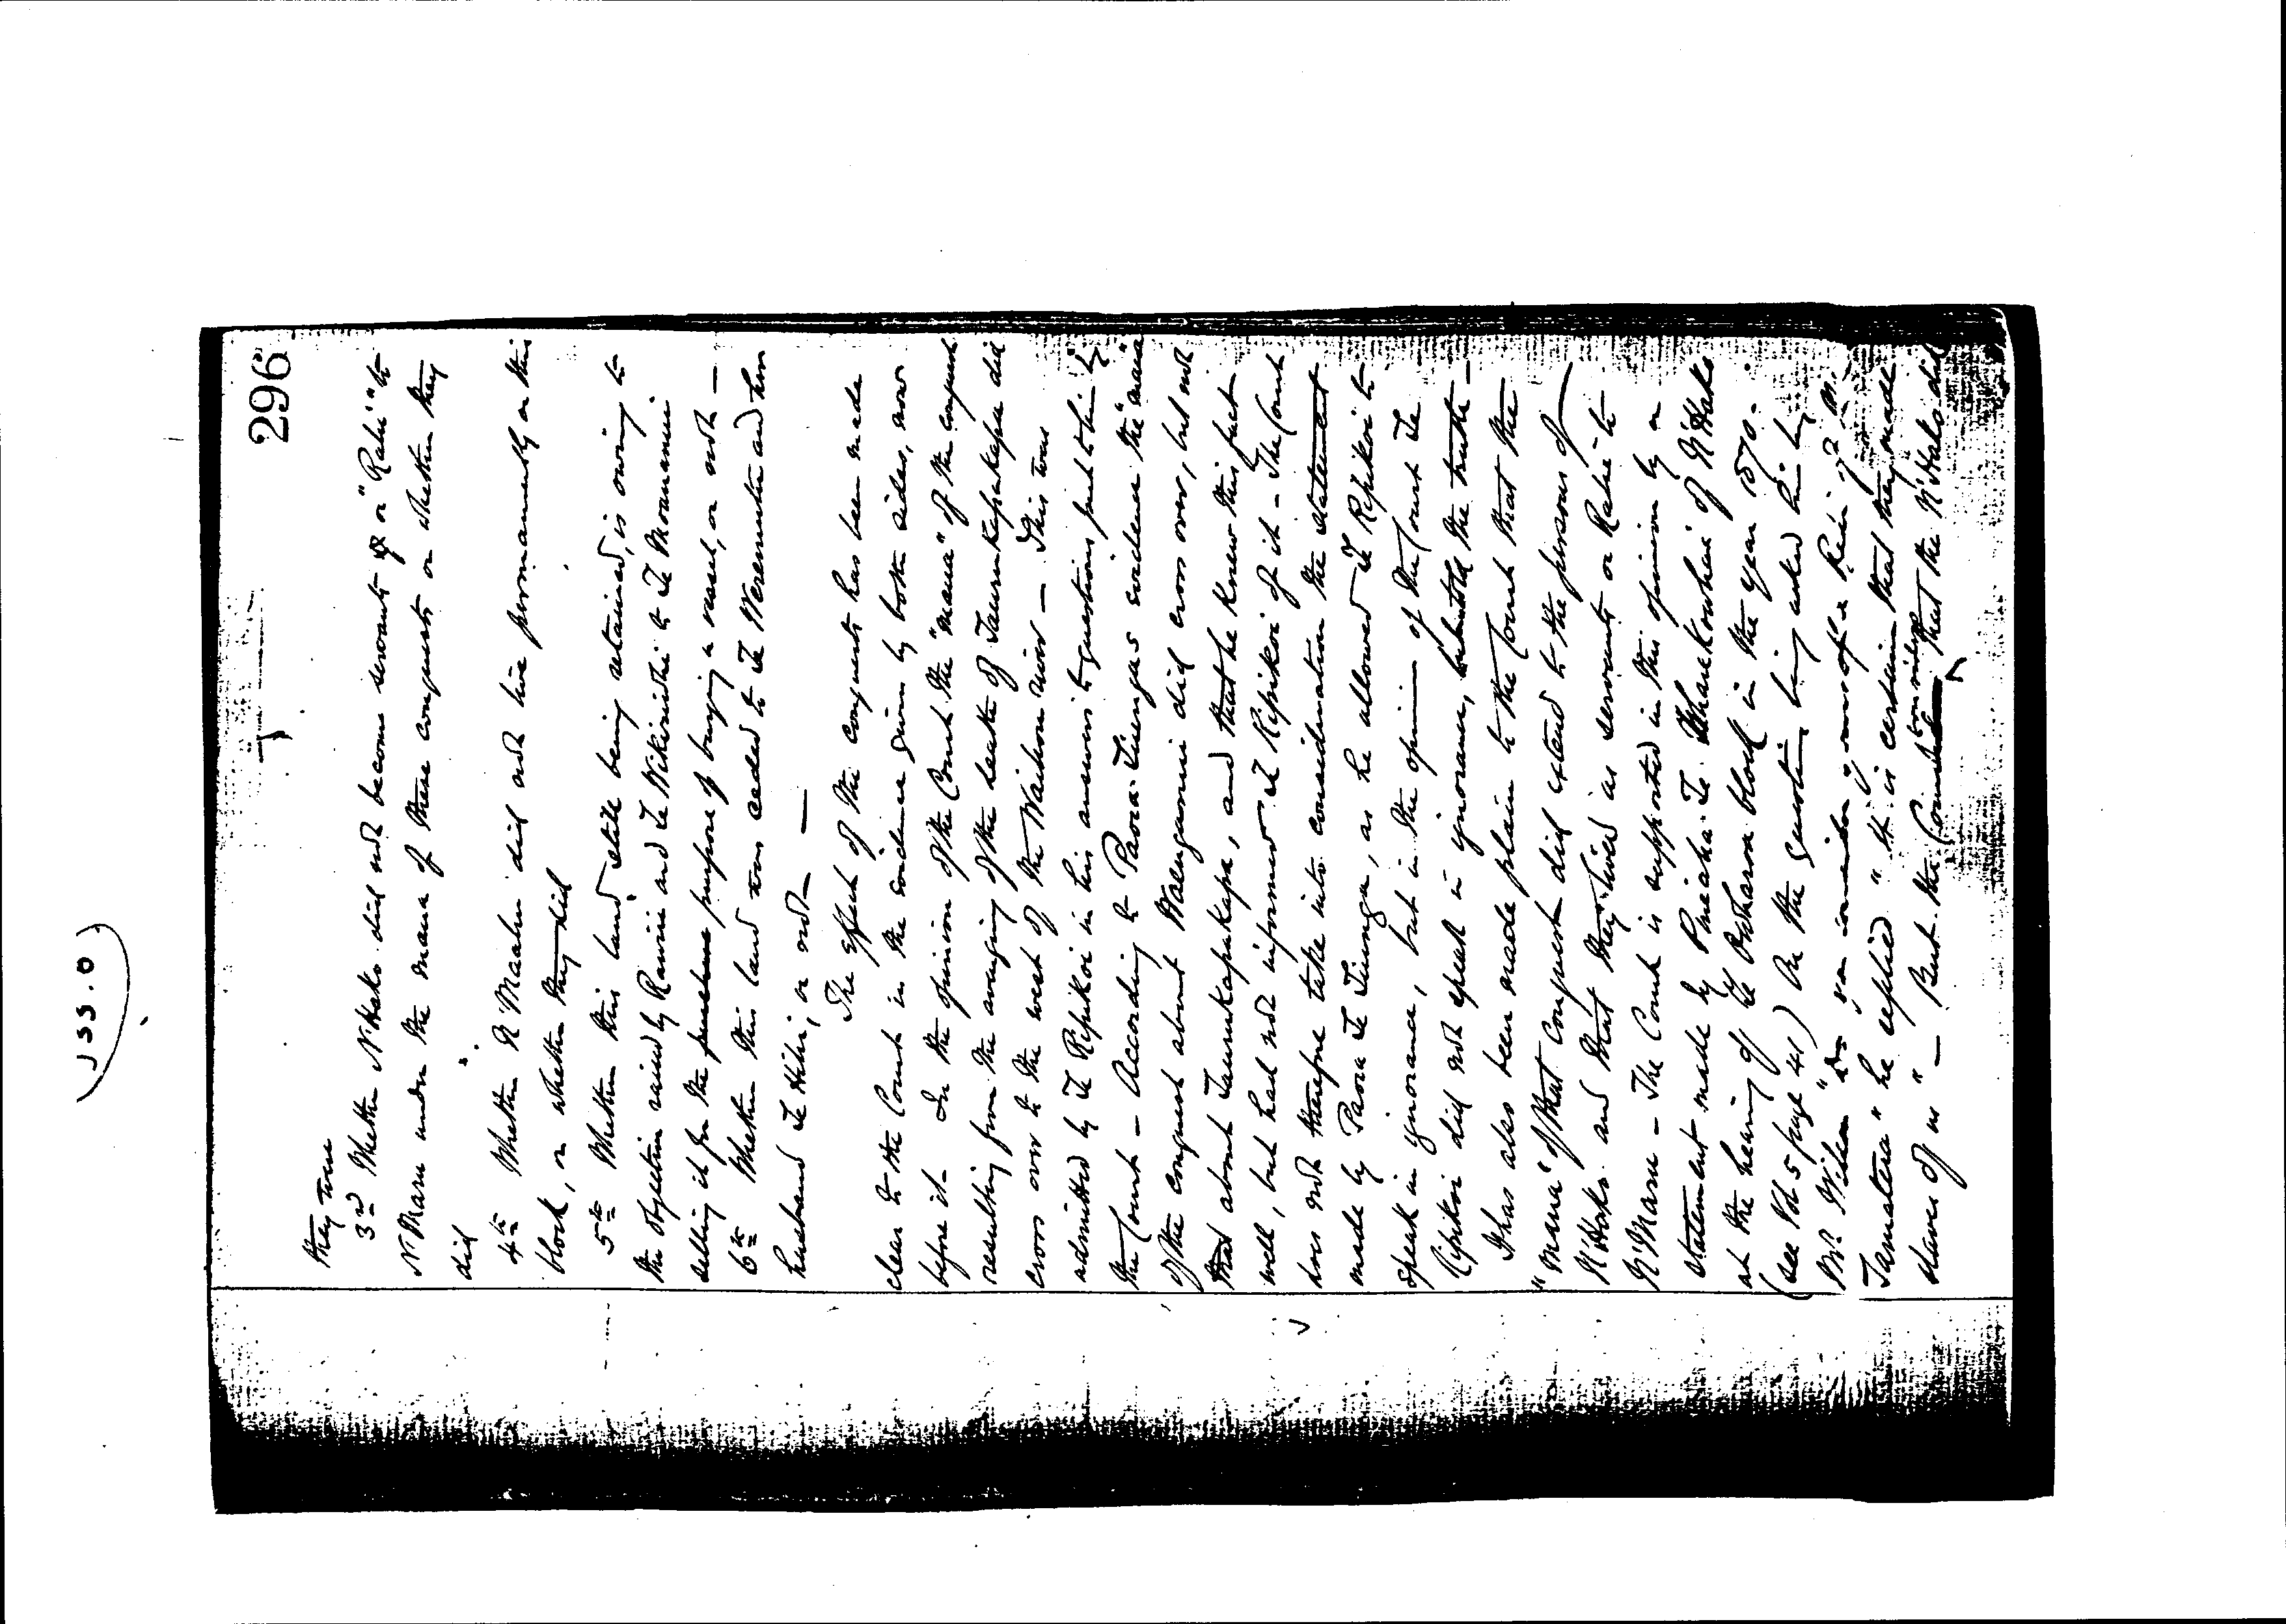 296
(J35.0)
they were
3rd Whether N'Hako did not become servants or "Rahi" to
N'Maru under the mana of these conquests or whether they
did
4th Whether N'Maahu did not live permanently on this
block, or whether they did
5th Whether this land still being retained, is owing to
the objection raised by Rawiri and Te Wikiriwhi to Te Moananui
selling it for the purchase purpose of buying a vessel, or not —
6th Whether this land was ceded to Te Weremutu and her
husband Te Hihi, or not —
The effect of the conquests has been made
clear to the Court in the evidence given by both sides, now
before it. In the opinion of the Court the "mana" of the conquest
resulting from the avenging of the death of Taurukapakapa did
cross over to the west of the Waihou river — This was
admitted by Te Ripikoi in his answers to questions put to him by
the Court — According to Paora Tiunga's evidence the "mana"
of the conquest about Waengauri did cross over, but not
that about Taurukapakapa, and that he knew this fact
well, but had not informed Te Ripikoi of it — The Court
does not therefore take into consideration the statement
made by Paora Te Tiunga, as he allowed Te Ripikoi to
speak in ignorance, but in the opinion of the Court Te
Ripikoi did not speak in ignorance, but told the truth —
It has also been made plain to the Court that the
"mana" of that conquest did extend to the persons of
N'Hako and that they lived as servants or Rahi to
N'Maru — The Court is supported in this opinion by a
statement made by Pineaha Te Wharekowhai of N'Hako
at the hearing of Te Ohinau block in the year 1870.
(see Vol 5 page 41) On the question being asked him by
Mr. Wilson "do you consider yourself a Rahi of N.
Tamatera" he replied "it is certain that they made
slaves of us" — But the Court considers that the N'Hako did